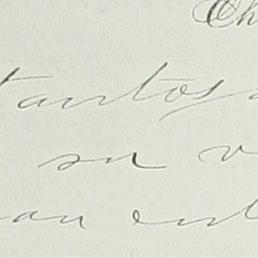 Ch
tantos
su v
an ent